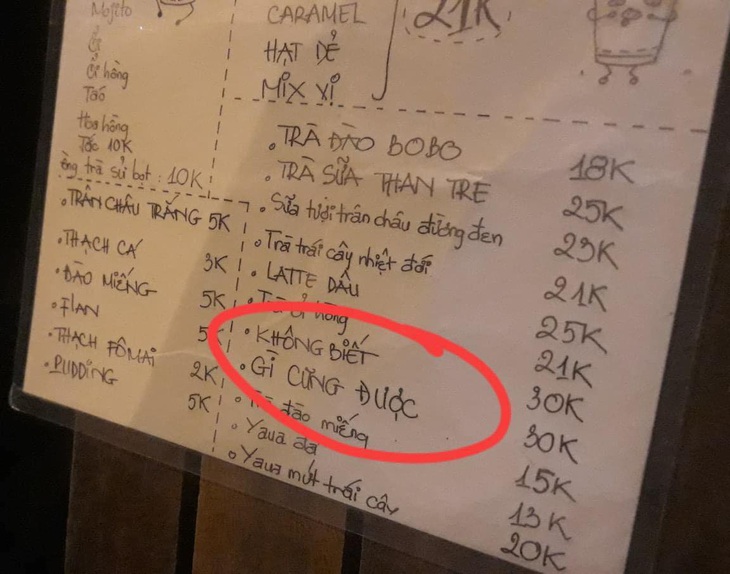 Mojito
ổi
ổi hồng
Táo
Hoa hồng
Tắc 10K
trà sủi bọt : 10K
• TRÂN CHÂU TRẮNG 5K
• THẠCH CÁ 3K
• ĐÀO MIẾNG 5K
• FLAN 5K
• THẠCH FÔMAI 2K
• PUDDING 5K
CARAMEL
HẠT DẺ
MIX VỊ
21K
• TRÀ ĐÀO BOBO 18K
• TRÀ SỮA THAN TRE 25K
• Sữa tươi trân châu đường đen 23K
• Trà trái cây nhiệt đới 21K
• LATTE DÂU 25K
• Trà ổi hồng 21K
• KHÔNG BIẾT 30K
• GÌ CŨNG ĐƯỢC 30K
• Trà đào miếng 15K
• Yaua đá 13K
• Yaua mứt trái cây 20K